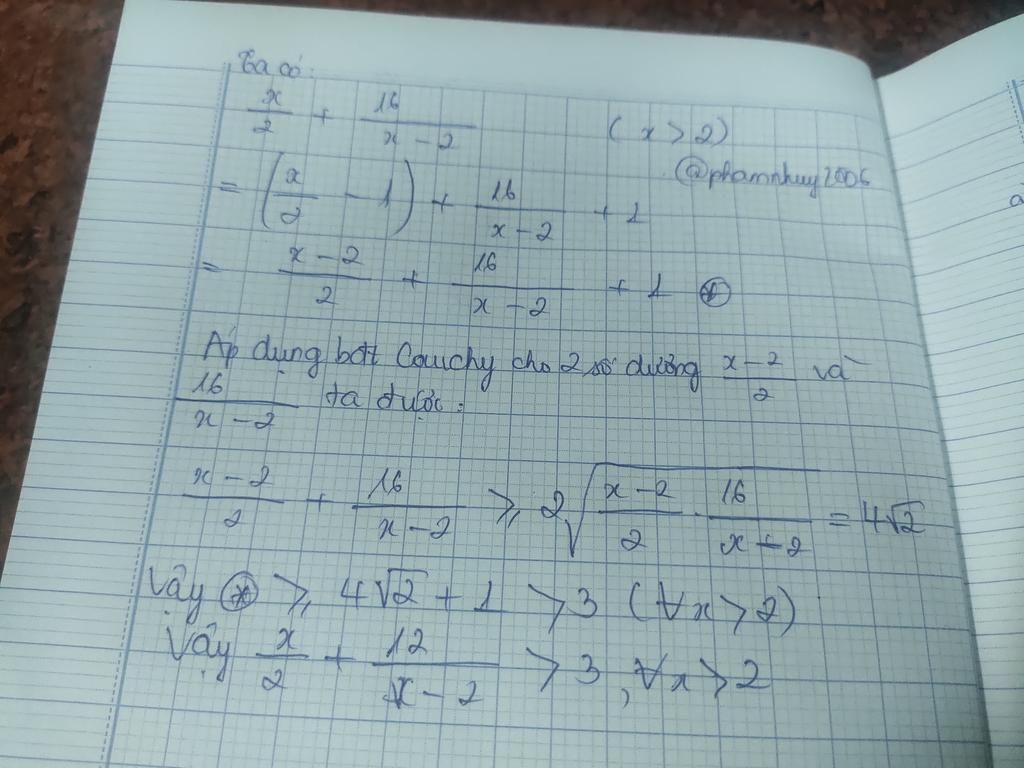 Ta có:
x/2 + 16/(x - 2) (x > 2)
@phamnhuy2006
= (x/2 - 1) + 16/(x - 2) + 1
= (x - 2)/2 + 16/(x - 2) + 1 (*)
Áp dụng bđt Cauchy cho 2 số dương (x - 2)/2 và
16/(x - 2) ta được:
(x - 2)/2 + 16/(x - 2) ≥ 2√((x - 2)/2 · 16/(x - 2)) = 4√2
Vậy (*) ≥ 4√2 + 1 > 3 (∀x > 2)
Vậy x/2 + 12/(x - 2) > 3, ∀x > 2